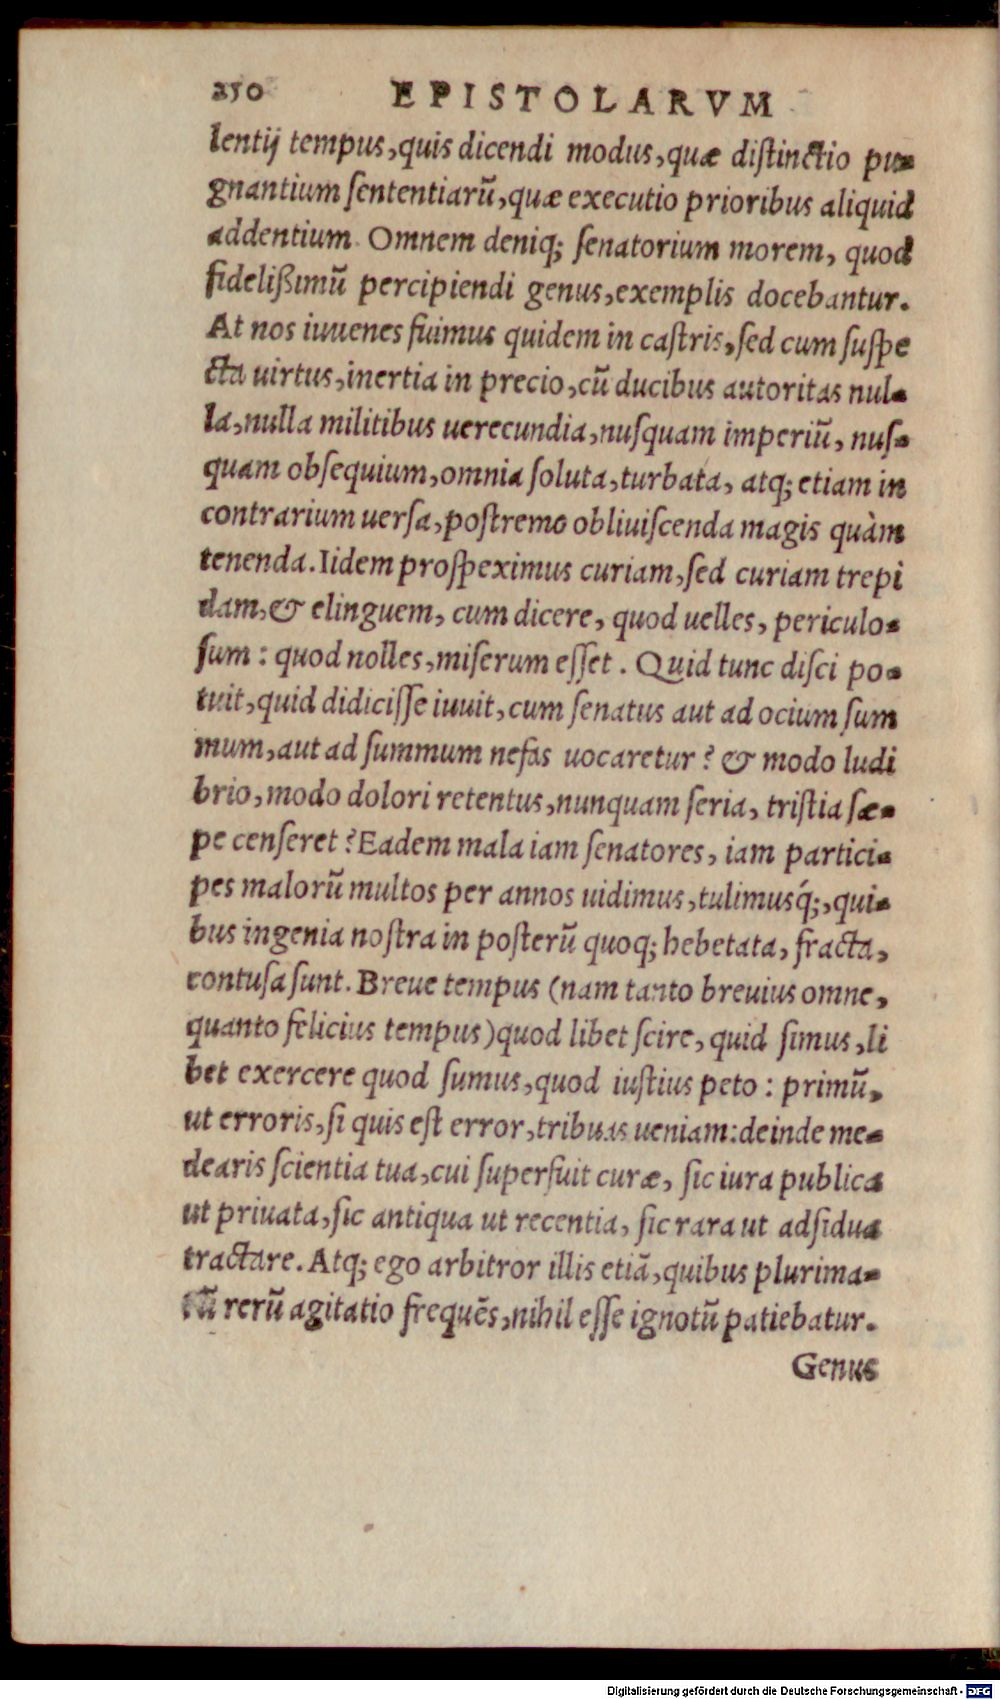 250 EPISTOLARVM
lentij tempus, quis dicendi modus, quæ distinctio pu-
gnantium sententiarũ, quæ executio prioribus aliquid
addentium. Omnem deniq; senatorium morem, quod
fidelißimũ percipiendi genus, exemplis docebantur.
At nos iuuenes fuimus quidem in castris, sed cum suspe
cta uirtus, inertia in precio, cũ ducibus autoritas nul-
la, nulla militibus uerecundia, nusquam imperiũ, nus-
quam obsequium, omnia soluta, turbata, atq; etiam in
contrarium uersa, postremo obliuiscenda magis quàm
tenenda. Iidem prospeximus curiam, sed curiam trepi
dam, & elinguem, cum dicere, quod uelles, periculo-
sum: quod nolles, miserum esset. Quid tunc disci po-
tuit, quid didicisse iuuit, cum senatus aut ad ocium sum
mum, aut ad summum nefas uocaretur? & modo ludi
brio, modo dolori retentus, nunquam seria, tristia sæ-
pe censeret? Eadem mala iam senatores, iam partici-
pes malorũ multos per annos uidimus, tulimusq́;, qui-
bus ingenia nostra in posterũ quoq; hebetata, fracta,
contusa sunt. Breue tempus (nam tanto breuius omne,
quanto felicius tempus) quod libet scire, quid simus, li
bet exercere quod sumus, quod iustius peto: primũ,
ut erroris, si quis est error, tribuas ueniam: deinde me-
dearis scientia tua, cui superfuit curæ, sic iura publica
ut priuata, sic antiqua ut recentia, sic rara ut adsidua
tractare. Atq; ego arbitror illis etiã, quibus plurima-
rũ rerũ agitatio frequẽs, nihil esse ignotũ patiebatur.
Genus
Digitalisierung gefördert durch die Deutsche Forschungsgemeinschaft - DFG